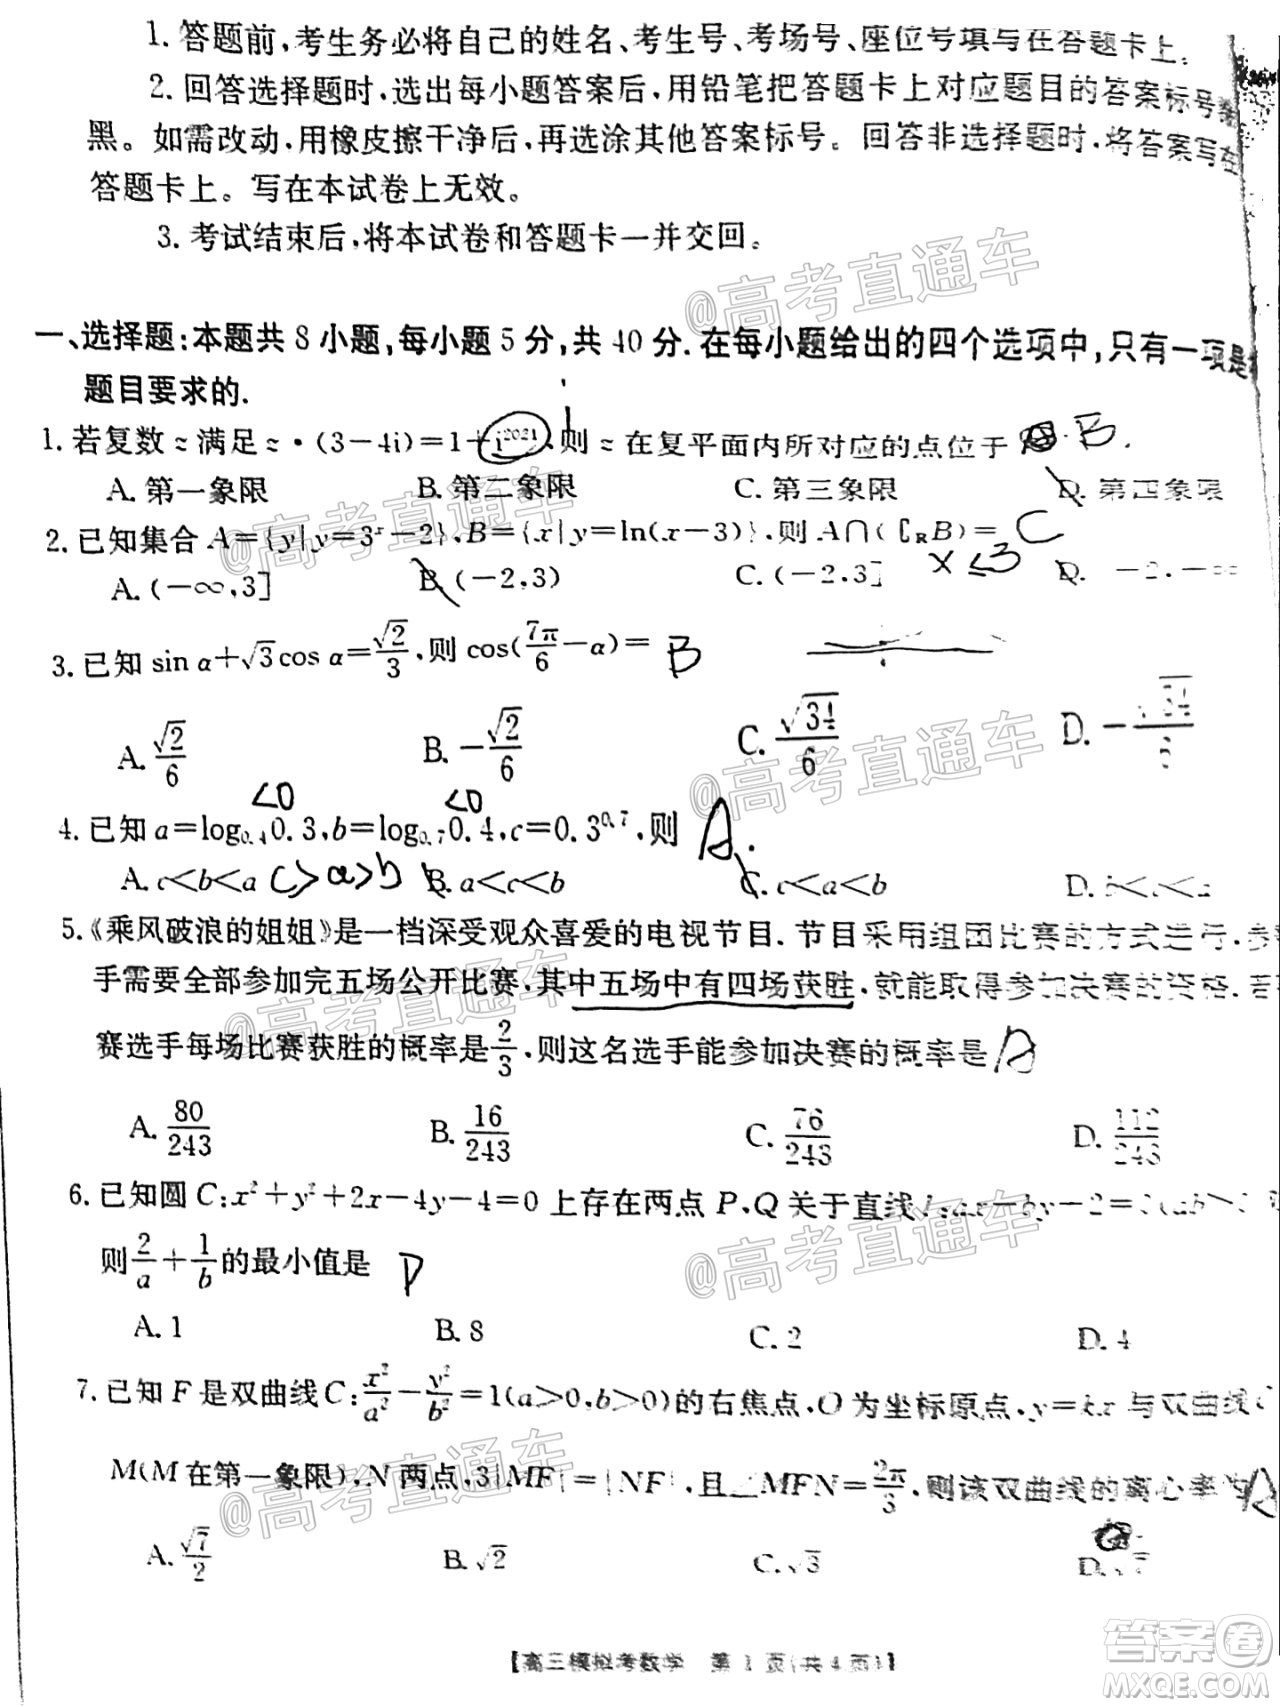 1. 答题前,考生务必将自己的姓名、考生号、考场号、座位号填写在答题卡上。
2. 回答选择题时,选出每小题答案后,用铅笔把答题卡上对应题目的答案标号
黑。如需改动,用橡皮擦干净后,再选涂其他答案标号。回答非选择题时,将答案写在
答题卡上。写在本试卷上无效。
3. 考试结束后,将本试卷和答题卡一并交回。
@高考直通车
一、选择题:本题共8小题,每小题5分,共40分.在每小题给出的四个选项中,只有一项是
题目要求的.
i
1. 若复数 z 满足 z·(3-4i)=1+i²⁰²¹,则 z 在复平面内所对应的点位于 B.
A. 第一象限 B. 第二象限 C. 第三象限 D. 第四象限
@高考直通车
2. 已知集合 A={y|y=3ˣ-2},B={x|y=ln(x-3)},则 A∩(∁RB)= C
A. (-∞,3] B. (-2,3) C. (-2,3] x≤3 D.
3. 已知 sin α+√3cos α=√2/3,则 cos(7π/6-α)= B
A. √2/6 B. -√2/6 C. √34/6 D. -√34/
@高考直通车
<0 <0
4. 已知 a=log₀.₄0.3,b=log₀.₇0.4,c=0.3⁰·⁷,则 A.
A. c<b<a c>a>b B. a<c<b C. c<a<b D.
5.《乘风破浪的姐姐》是一档深受观众喜爱的电视节目.节目采用组团比赛的方式进行,参
手需要全部参加完五场公开比赛,其中五场中有四场获胜,就能取得参加决赛的资格.若
@高考直通车
赛选手每场比赛获胜的概率是2/3,则这名选手能参加决赛的概率是 A
A. 80/243 B. 16/243 C. 76/243 D. 112/243
6. 已知圆 C:x²+y²+2x-4y-4=0 上存在两点 P,Q 关于直线 l:ax-by-2=0(ab>
则2/a+1/b的最小值是 D
@高考直通车
A. 1 B. 8 C. 2 D. 4
7. 已知 F 是双曲线C:x²/a²-y²/b²=1(a>0,b>0)的右焦点,O 为坐标原点,y=kx 与双曲线
M(M 在第一象限),N 两点,3|MF|=|NF|,且∠MFN=2π/3,则该双曲线的离心率为 A
@高考直通车
A. √7/2 B. √2 C. √3 D.
【高三模拟考数学 第 1 页(共 4 页)】
答案卷
MXQE.COM